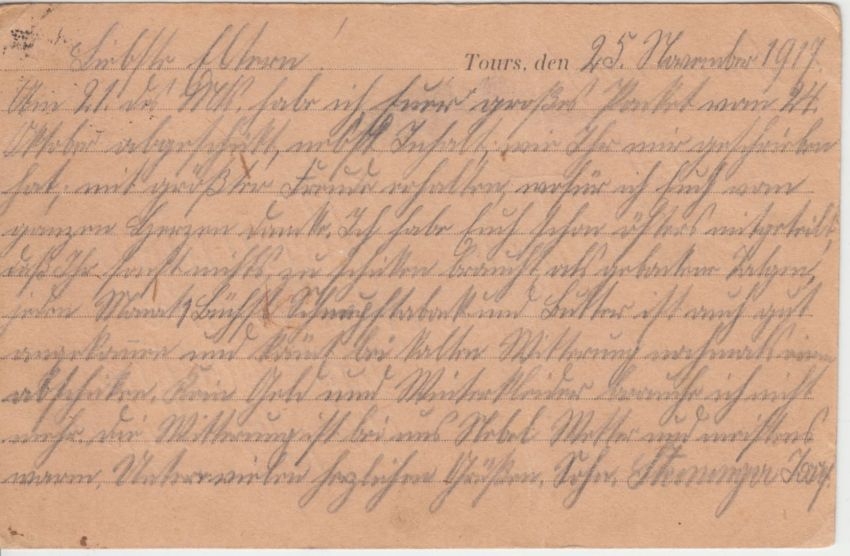 Liebste Eltern! Tours, den 25. November 1917.
Am 21. des Mts. habe ich Euer großes Packet vom 24.
Oktober abgeschükt, nebst Inhalt, wie Ihr mir geschrieben
hat, mit größter Freude erhalten, wofür ich Euch vom
ganzen Herzen danke. Ich habe Euch schon öfters mitgeteilt,
daß Ihr sonst nichts zu schiken braucht als gebackene
jeden Monat, Büchse Schnupftaback und Butter ist auch gut
angekommen und könnt bei kalten Witterung nochmals einen
abschiken. Kein Geld und Winterkleider brauche ich nicht
mehr. die Witterung ist bei uns Nebel Wetter und meistens
warm. Unter vielen herzlichen Grüßen. Sohn.